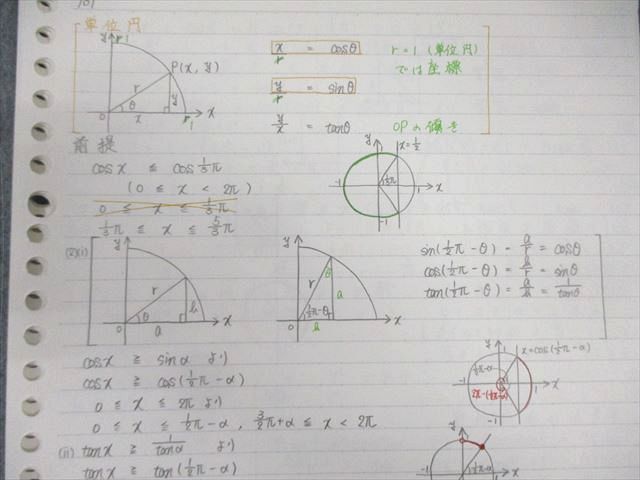 単位円
y r1
P(x, y)
r y
θ
0 x r1 x
x/r = cosθ
r=1 (単位円)
では座標
y/r = sinθ
y/x = tanθ
OPの傾き
前提
cosx ≦ cos1/3π
(0 ≦ x < 2π)
0 ≦ x ≦ 1/3π
1/3π ≦ x ≦ 5/3π
y x=1/2
-1 1/3π 1 x
-1
(2)(i)
y
r b
θ
0 a x
y
θ
r a
1/2π-θ
0 b x
sin(1/2π-θ) = a/r = cosθ
cos(1/2π-θ) = b/r = sinθ
tan(1/2π-θ) = a/b = 1/tanθ
cosx ≧ sinα より
cosx ≧ cos(1/2π-α)
0 ≦ x ≦ 2π より
0 ≦ x ≦ 1/2π-α , 3/2π+α ≦ x < 2π
y 1 x=cos(1/2π-α)
1/2π-α
-1 1 x
2π-(1/2π-α)
-1
(ii) tanx ≧ 1/tanα より
tanx ≧ tan(1/2π-α)
y
1
1/2π-α
-1 1 x